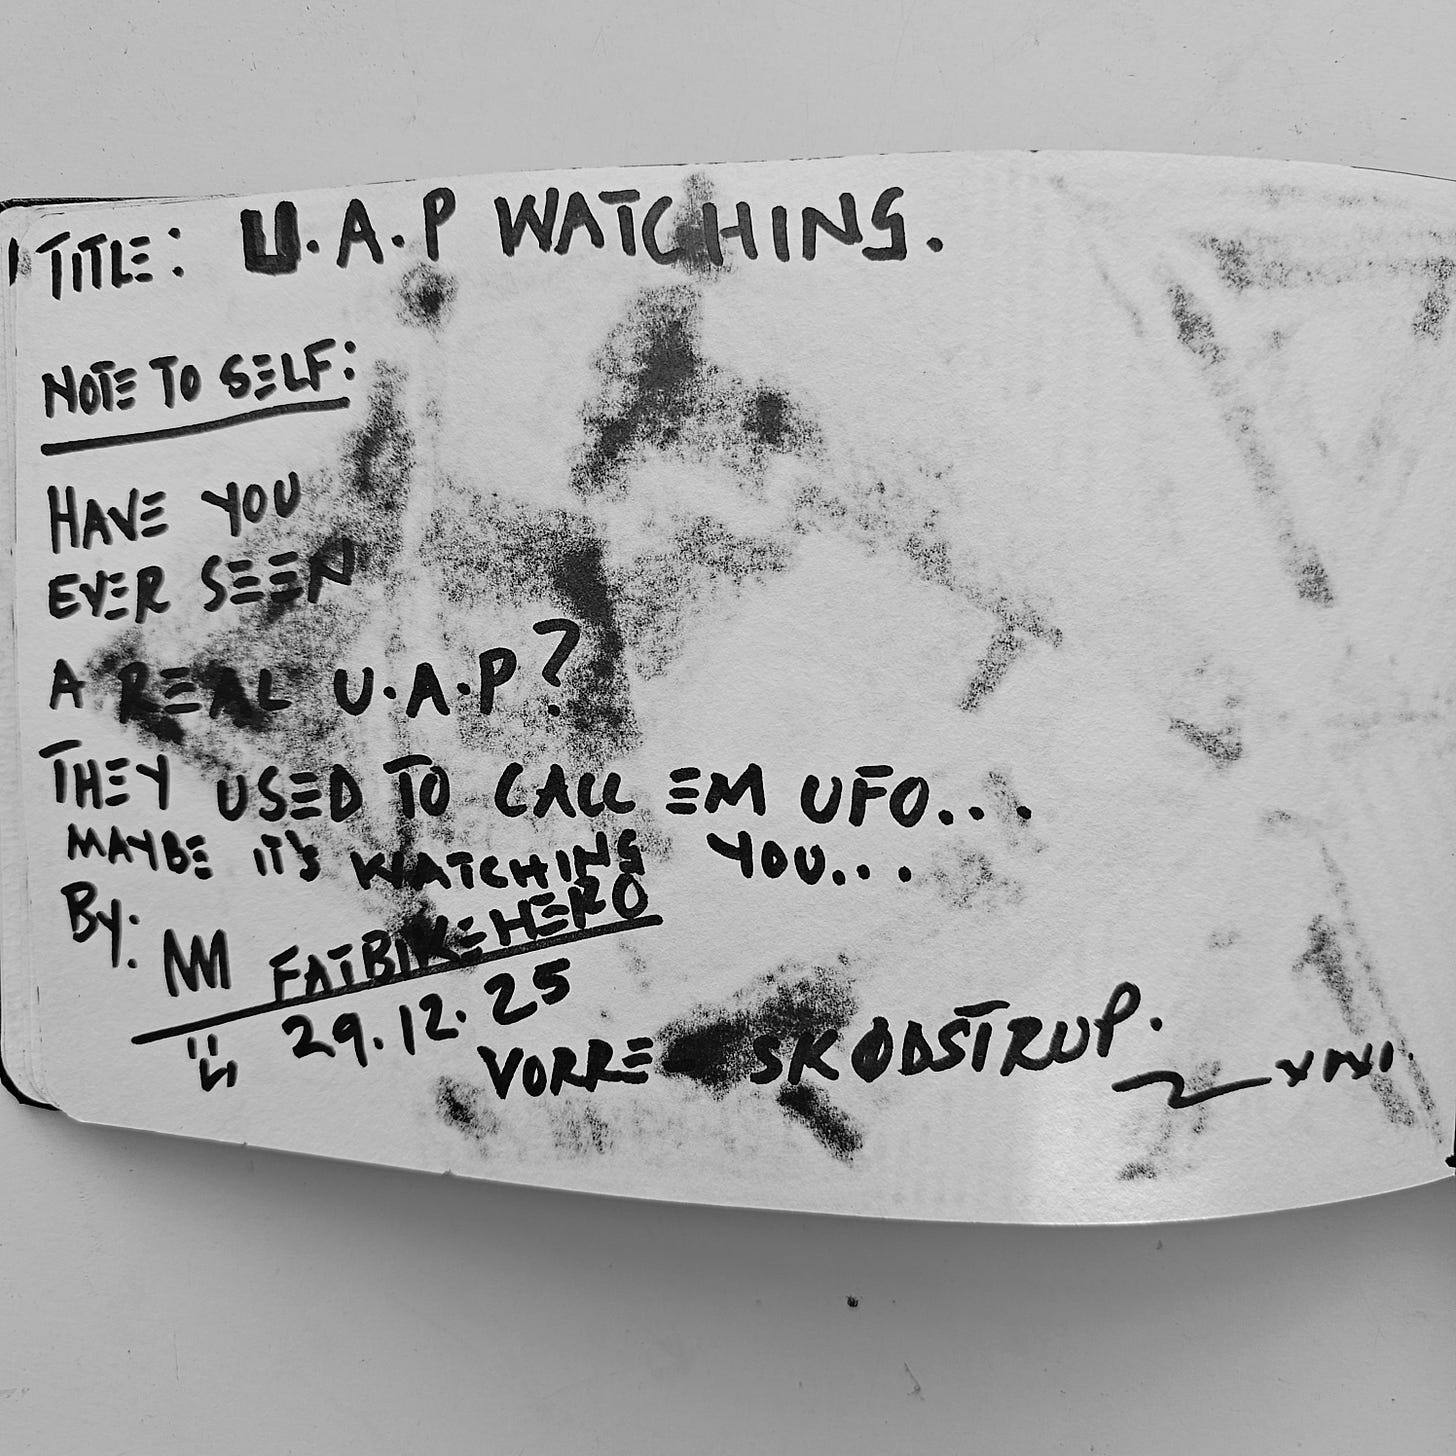 TITLE: U.A.P WATCHING.
NOTE TO SELF:
HAVE YOU
EVER SEEN
A REAL U.A.P?
THEY USED TO CALL EM UFO...
MAYBE IT'S WATCHING YOU...
By: FATBIKEHERO
29.12.25
VORRE SKØDSTRUP.